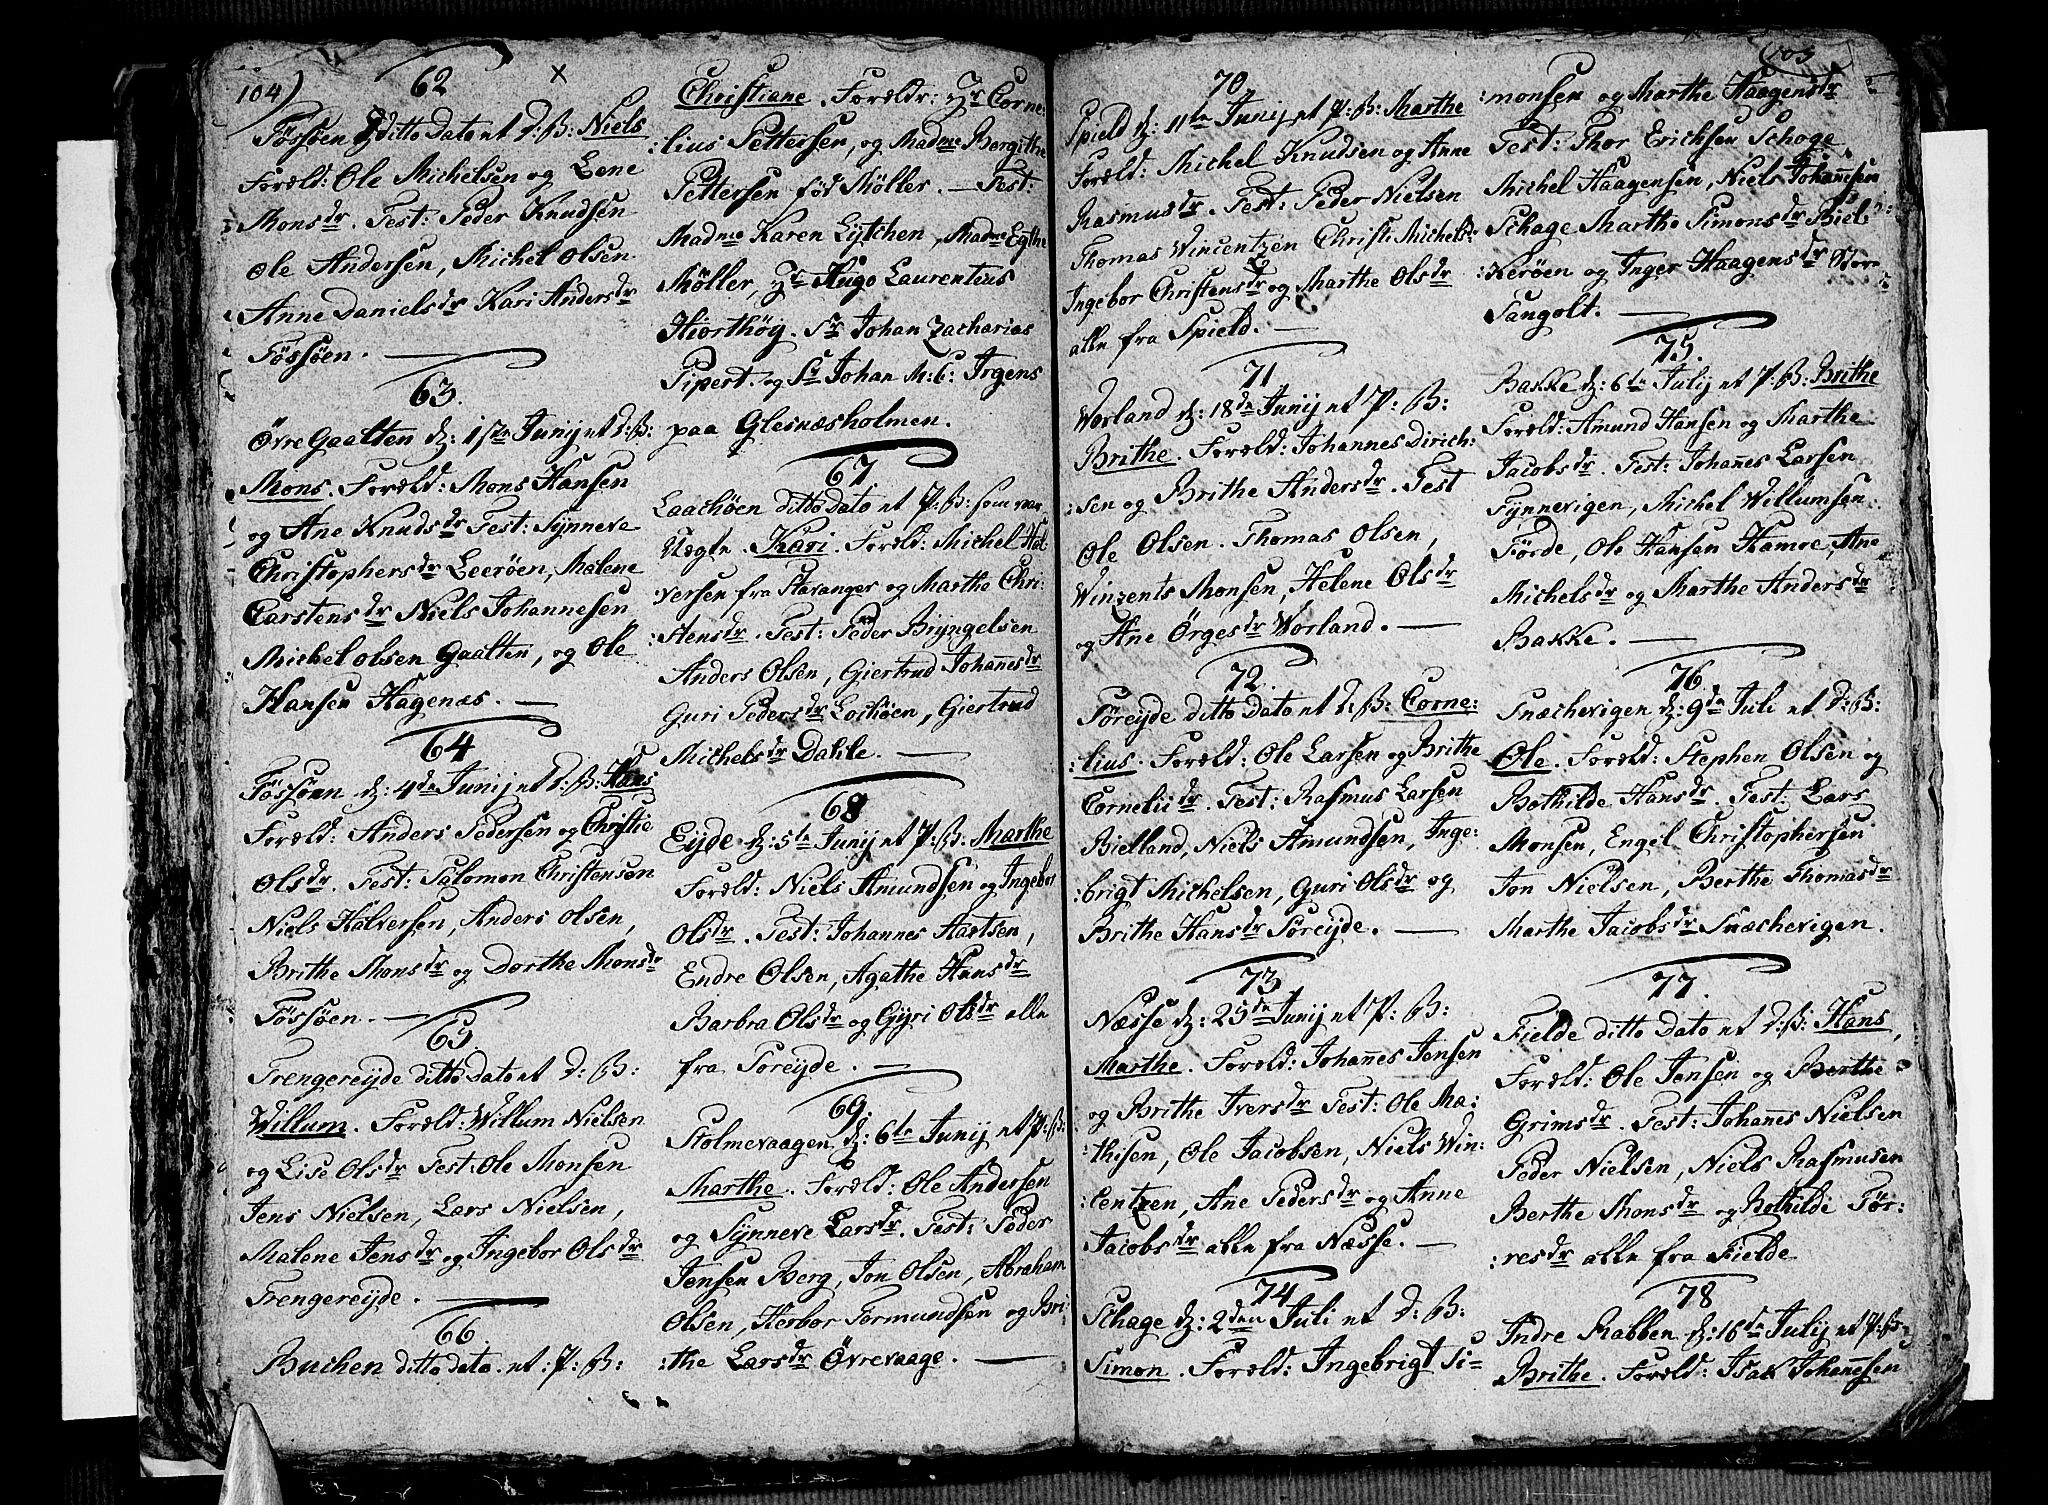 104)
62
Føssøen ditto Dato et D: B: Niels
Foræld: Ole Michelsen og Lene
Monsdr. Test: Peder Knudsen
Ole Andersen, Michel Olsen
Anne Danielsdr Kari Andersdr
Føssøen.
63.
Øvre Gaalten d: 1ste Junij et D: B:
Mons. Foræld: Mons Hansen
og Ane Knudsdr Test: Synneve
Christophersdr Leerøen, Malene
Carstensdr Niels Johannesen
Michel Olsen Gaalten, og Ole
Hansen Hagenæs.
64
Føssøen d: 4de Junij et D: B: Hans
Foræld: Anders Pedersen og Christie
Olsdr. Test: Salomon Christensen
Niels Halversen, Anders Olsen,
Brithe Monsdr og Dorthe Monsdr
Føssøen.
65.
Trengereyde ditto Dato et D: B:
Willum. Foræld: Willum Nielsen
og Lise Olsdr Test: Ole Monsen
Jens Nielsen, Lars Nielsen,
Malene Jensdr og Ingebor Olsdr
Trengereyde.
66.
Buchen ditto dato. et: P: B:
Christiane. Forældr: Hr Corne:
:lius Pettersen, og Madme Bergithe
Pettersen fød Møller. Test:
Madme Karen Lytchen, Madme Egthe
Møller, Hr Hugo Laurentius
Hiorthøy. Sr Johan Zacharias
Pipert. og Sr Johan M: C: Irgens
paa Glesnæsholmen.
67
Laachøen ditto dato et P: B: som var
Uægte. Kari. Foræld: Michel Hal
versen fra Stavanger og Marthe Chri:
:stensdr. Test: Peder Bryngelsen
Anders Olsen, Giertrud Johannesdr
Guri Pedersdr Lochøen, Giertrud
Michelsdr Dahle.
68
Eyde d: 5te Junij et P: B: Marthe
Foræld: Niels Amundsen og Ingebor
Olsdr. Test: Johannes Aartsen,
Endre Olsen, Agathe Hansdr
Barbra Olsdr og Gyri Olsdr alle
fra Toreyde.
69.
Stolmevaagen d: 6te Junij et P: B:
Marthe. Foræld: Ole Andersen
og Synneve Larsdr. Test: Peder
Jensen Berg, Jon Olsen, Abraham
Olsen, Herbor Tormundsen og Bri:
:the Larsdr Øvrevaage.
70
Spield d: 11te Junij et P: B: Marthe
Foræld: Michel Knudsen og Anne
Rasmusdr. Test: Peder Nielsen
Thomas Wincentzen Christ: Michelsdr
Ingebor Christensdr og Marthe Olsdr
alle fra Spield.
71
Worland d: 18de Junij et P: B:
Brithe. Foræld: Johannes Dirich:
:sen og Brithe Andersdr. Test
Ole Olsen. Thomas Olsen,
Winzents Monsen, Helene Olsdr
og Ane Ørgesdr Worland.
72.
Toreyde ditto Dato et D: B: Corne:
:lius. Foræld: Ole Larsen og Brithe
Corneliidr. Test: Rasmus Larsen
Bielland, Niels Amundsen, Inge:
:brigt Michelsen, Guri Olsdr og
Brithe Hansdr Toreyde.
73
Næsse d: 25de Junij et P: B:
Marthe. Foræld: Johannes Jensen
og Brithe Iversdr Test: Ole Ma:
:thisen, Ole Jacobsen, Niels Win:
:centzen, Ane Pedersdr og Anne
Jacobsdr alle fra Næsse.
74
Schage d: 2den Juli et D: B:
Simon. Foræld: Ingebrigt Si=
:monsen og Marthe Haagensdr
Test: Thor Ericksen Schoge
Michel Haagensen, Niels Johannesen
Schage Marthe Simonsdr Biel:
:kerøen og Inger Haagensdr Store
Sangolt.
75.
Bakke d: 6te Julij et P: B: Brithe
Foræld: Amund Hansen og Marthe
Jacobsdr. Test: Johannes Larsen
Tynnevigen, Michel Willumsen
Førde, Ole Hansen Hamre, Ane
Michelsdr og Marthe Andersdr
Bakke.
76
Snæchevigen d: 9de Juli et D: B:
Ole. Foræld: Stephen Olsen og
Bothilde Hansdr. Test: Lars
Monsen, Engel Christophersen
Jon Nielsen, Berthe Thomasdr
Marthe Jacobsdr Snæchevigen.
77.
Fielde ditto Dato et D: B: Hans,
Foræld: Ole Jensen og Berthe
Grimsdr. Test: Johannes Nielsen
Peder Nielsen, Niels Rasmusen
Berthe Monsdr og Bothilde Tør:
:resdr alle fra Fielde
78
Indre Rabben d: 16de Julij et P: B:
Brithe. Foræld: Isak Johannesen